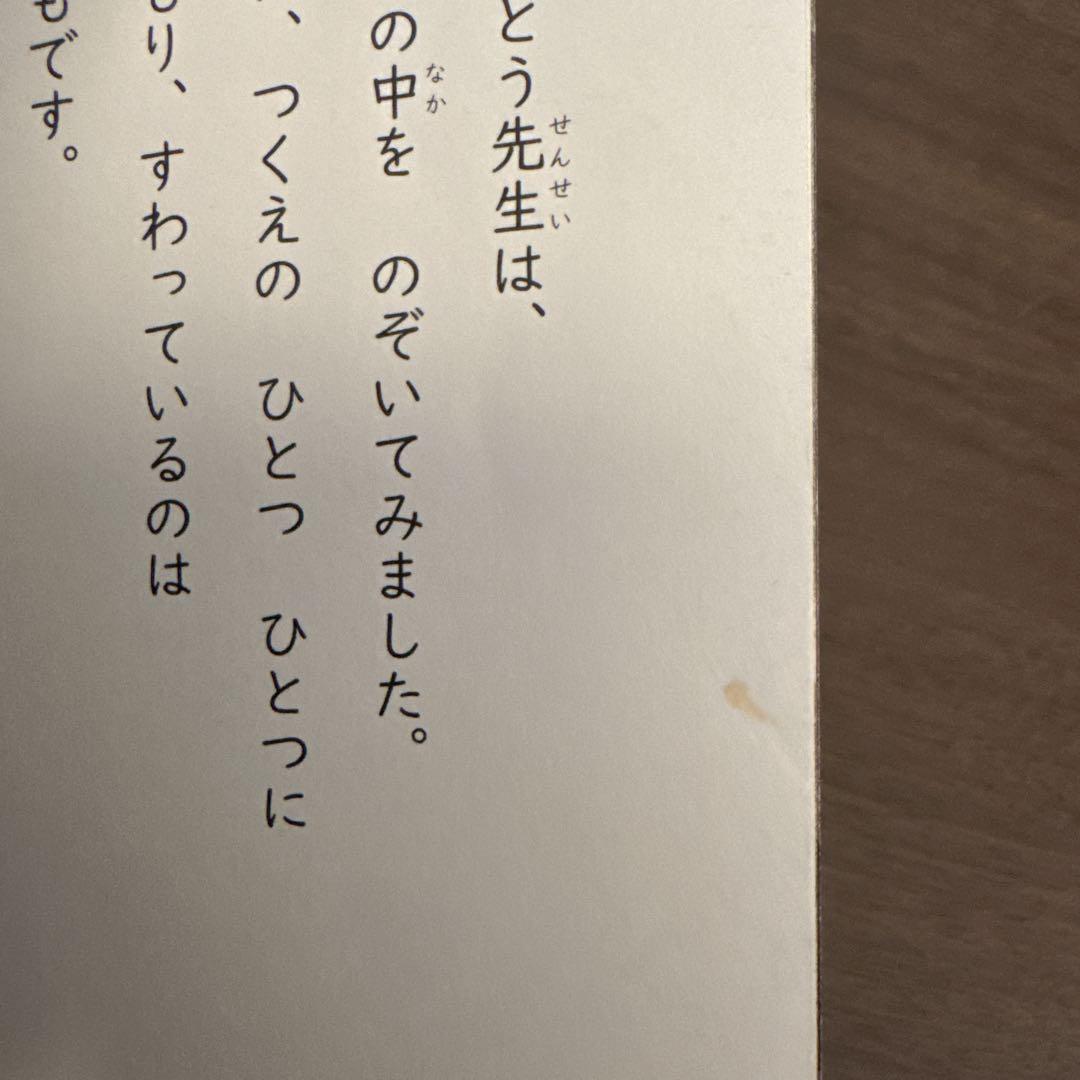 とう先生は、
の中を のぞいてみました。
、つくえの ひとつ ひとつに
り、すわっているのは
もです。